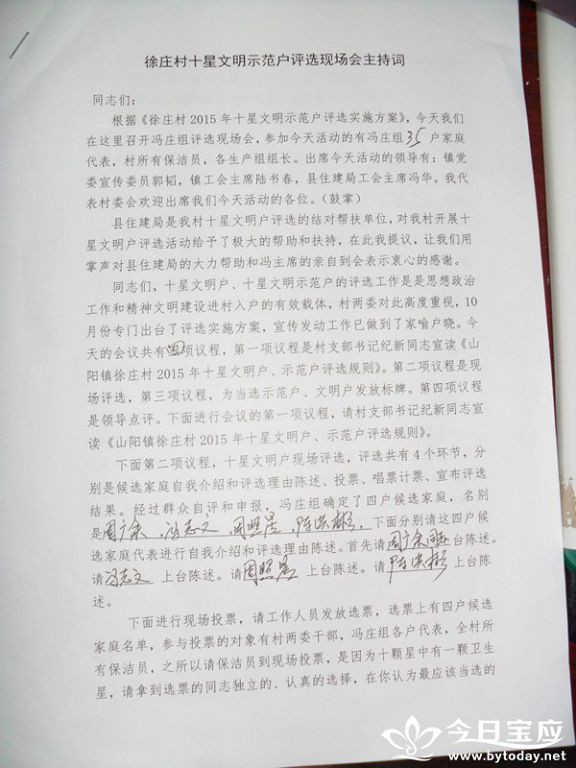 徐庄村十星文明示范户评选现场会主持词
同志们：
根据《徐庄村 2015 年十星文明示范户评选实施方案》，今天我们
在这里召开冯庄组评选现场会，参加今天活动的有冯庄组 35 户家庭
代表，村所有保洁员，各生产组组长。出席今天活动的领导有：镇党
委宣传委员郭韬，镇工会主席陆书春，县住建局工会主席冯华。我代
表村委会欢迎出席我们今天活动的各位。（鼓掌）
县住建局是我村十星文明户评选的结对帮扶单位，对我村开展十
星文明户评选活动给予了极大的帮助和扶持，在此我提议，让我们用
掌声对县住建局的大力帮助和冯主席的亲自到会表示衷心的感谢。
同志们，十星文明户、十星文明示范户的评选工作是是思想政治
工作和精神文明建设进村入户的有效载体，村两委对此高度重视，10
月份专门出台了评选实施方案，宣传发动工作已做到了家喻户晓。今
天的会议共有四项议程，第一项议程是村支部书记纪新同志宣读《山
阳镇徐庄村 2015 年十星文明户、示范户评选规则》。第二项议程是现
场评选，第三项议程，为当选示范户、文明户发放标牌。第四项议程
是领导点评。下面进行会议的第一项议程，请村支部书记纪新同志宣
读《山阳镇徐庄村 2015 年十星文明户、示范户评选规则》。
下面第二项议程，十星文明户现场评选，评选共有 4 个环节，分
别是候选家庭自我介绍和评选理由陈述、投票、唱票计票、宣布评选
结果。经过群众自评和申报，冯庄组确定了四户候选家庭，名别
是周广余，冯志文，周照星，陈洪彬，下面分别请这四户候
选家庭代表进行自我介绍和评选理由陈述。首先请周广余同志台陈述。
请冯志文上台陈述。请周照星上台陈述。请陈洪彬上台陈
述。
下面进行现场投票，请工作人员发放选票，选票上有四户候选
家庭名单，参与投票的对象有村两委干部，冯庄组各户代表，全村所
有保洁员，之所以请保洁员到现场投票，是因为十颗星中有一颗卫生
星，请拿到选票的同志独立的、认真的选择，在你认为最应该当选的
今日宝应
www.bytoday.net